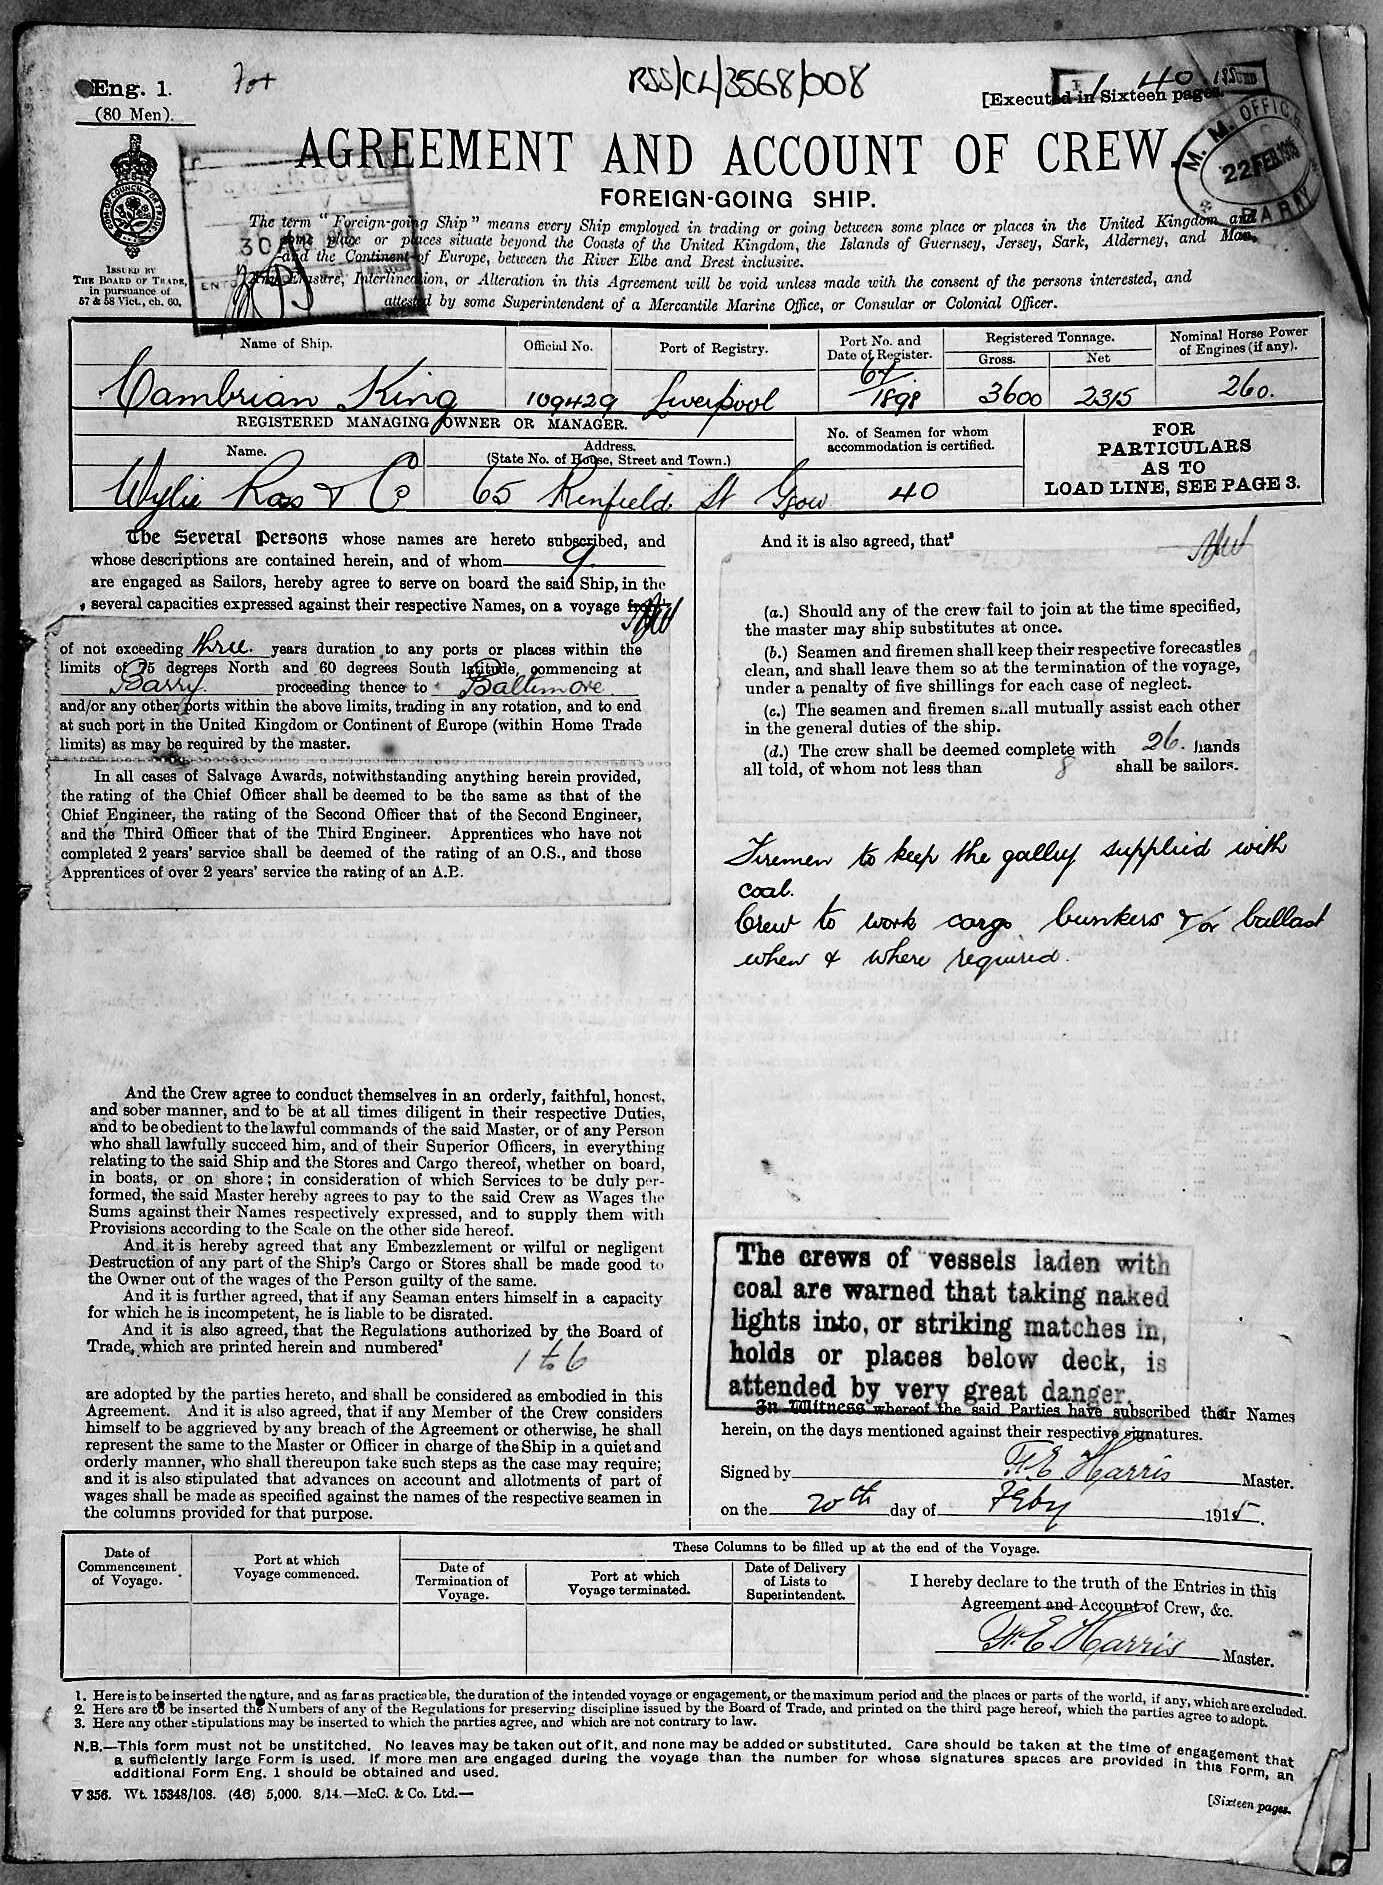 Eng. 1.
(80 Men).
RSS/CL/3568/008
[Executed in Sixteen pages.
M. M. OFFICE
22 FEB 1915
BARRY
AGREEMENT AND ACCOUNT OF CREW.
FOREIGN-GOING SHIP.
ISSUED BY
THE BOARD OF TRADE,
in pursuance of
57 & 58 Vict., ch. 60.
The term "Foreign-going Ship" means every Ship employed in trading or going between some place or places in the United Kingdom, and
some place or places situate beyond the Coasts of the United Kingdom, the Islands of Guernsey, Jersey, Sark, Alderney, and Man,
and the Continent of Europe, between the River Elbe and Brest inclusive.
Any Erasure, Interlineation, or Alteration in this Agreement will be void unless made with the consent of the persons interested, and
attested by some Superintendent of a Mercantile Marine Office, or Consular or Colonial Officer.
Name of Ship. Official No. Port of Registry. Port No. and Date of Register. Registered Tonnage. Gross. Net Nominal Horse Power of Engines (if any).
Cambrian King 109429 Liverpool 64/1898 3600 2315 260.
REGISTERED MANAGING OWNER OR MANAGER.
Name. Address. (State No. of House, Street and Town.) No. of Seamen for whom accommodation is certified.
Wylie Ross & Co 65 Renfield St Gow 40
FOR
PARTICULARS
AS TO
LOAD LINE, SEE PAGE 3.
The Several Persons whose names are hereto subscribed, and
whose descriptions are contained herein, and of whom 9.
are engaged as Sailors, hereby agree to serve on board the said Ship, in the
several capacities expressed against their respective Names, on a voyage from
of not exceeding three years duration to any ports or places within the
limits of 75 degrees North and 60 degrees South latitude, commencing at
Barry proceeding thence to Baltimore
and/or any other ports within the above limits, trading in any rotation, and to end
at such port in the United Kingdom or Continent of Europe (within Home Trade
limits) as may be required by the master.
In all cases of Salvage Awards, notwithstanding anything herein provided,
the rating of the Chief Officer shall be deemed to be the same as that of the
Chief Engineer, the rating of the Second Officer that of the Second Engineer,
and the Third Officer that of the Third Engineer. Apprentices who have not
completed 2 years' service shall be deemed of the rating of an O.S., and those
Apprentices of over 2 years' service the rating of an A.B.
And the Crew agree to conduct themselves in an orderly, faithful, honest,
and sober manner, and to be at all times diligent in their respective Duties,
and to be obedient to the lawful commands of the said Master, or of any Person
who shall lawfully succeed him, and of their Superior Officers, in everything
relating to the said Ship and the Stores and Cargo thereof, whether on board,
in boats, or on shore; in consideration of which Services to be duly per-
formed, the said Master hereby agrees to pay to the said Crew as Wages the
Sums against their Names respectively expressed, and to supply them with
Provisions according to the Scale on the other side hereof.
And it is hereby agreed that any Embezzlement or wilful or negligent
Destruction of any part of the Ship's Cargo or Stores shall be made good to
the Owner out of the wages of the Person guilty of the same.
And it is further agreed, that if any Seaman enters himself in a capacity
for which he is incompetent, he is liable to be disrated.
And it is also agreed, that the Regulations authorized by the Board of
Trade, which are printed herein and numbered²
1 to 6
are adopted by the parties hereto, and shall be considered as embodied in this
Agreement. And it is also agreed, that if any Member of the Crew considers
himself to be aggrieved by any breach of the Agreement or otherwise, he shall
represent the same to the Master or Officer in charge of the Ship in a quiet and
orderly manner, who shall thereupon take such steps as the case may require;
and it is also stipulated that advances on account and allotments of part of
wages shall be made as specified against the names of the respective seamen in
the columns provided for that purpose.
And it is also agreed, that³
(a.) Should any of the crew fail to join at the time specified,
the master may ship substitutes at once.
(b.) Seamen and firemen shall keep their respective forecastles
clean, and shall leave them so at the termination of the voyage,
under a penalty of five shillings for each case of neglect.
(c.) The seamen and firemen shall mutually assist each other
in the general duties of the ship.
(d.) The crew shall be deemed complete with 26. hands
all told, of whom not less than 8 shall be sailors.
Firemen to keep the galley supplied with
coal.
Crew to work cargo bunkers &/or ballast
when & where required.
The crews of vessels laden with
coal are warned that taking naked
lights into, or striking matches in,
holds or places below deck, is
attended by very great danger.
In Witness whereof the said Parties have subscribed their Names
herein, on the days mentioned against their respective signatures.
Signed by H.E. Harris Master.
on the 20th day of Feby 1915.
Date of Commencement of Voyage. Port at which Voyage commenced. These Columns to be filled up at the end of the Voyage.
Date of Termination of Voyage. Port at which Voyage terminated. Date of Delivery of Lists to Superintendent.
I hereby declare to the truth of the Entries in this
Agreement and Account of Crew, &c.
H.E. Harris Master.
1. Here is to be inserted the nature, and as far as practicable, the duration of the intended voyage or engagement, or the maximum period and the places or parts of the world, if any, which are excluded.
2. Here are to be inserted the Numbers of any of the Regulations for preserving discipline issued by the Board of Trade, and printed on the third page hereof, which the parties agree to adopt.
3. Here any other stipulations may be inserted to which the parties agree, and which are not contrary to law.
N.B.—This form must not be unstitched. No leaves may be taken out of it, and none may be added or substituted. Care should be taken at the time of engagement that
a sufficiently large Form is used. If more men are engaged during the voyage than the number for whose signatures spaces are provided in this Form, an
additional Form Eng. 1 should be obtained and used.
V 356. Wt. 15348/108. (46) 5,000. 8/14.—McC. & Co. Ltd.—
[Sixteen pages.